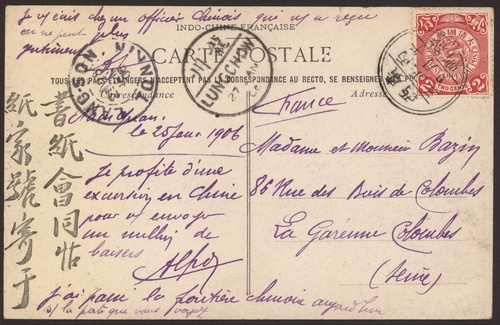 je t'écris chez un officier chinois qui m'a reçu
on ne peut plus
INDO-CHINE FRANÇAISE
CARTE POSTALE
TOUS LES PAYS ÉTRANGERS N'ACCEPTENT PAS LA CORRESPONDANCE AU RECTO, SE RENSEIGNER
Correspondance
Adresse
LANGSON
TONKIN
LUNGCHOW
27
TWO CENTS
le 25 Janv 1906
je profite d'une
excursion en Chine
pour vs envoyer
un million de
baisers
j'ai passé la frontière chinoise aujourd'hui
France
Madame et Monsieur Bazin
86 Rue des Bois de Colombes
La Garenne Colombes
(Seine)
書紙會同帖
紙家號寄于